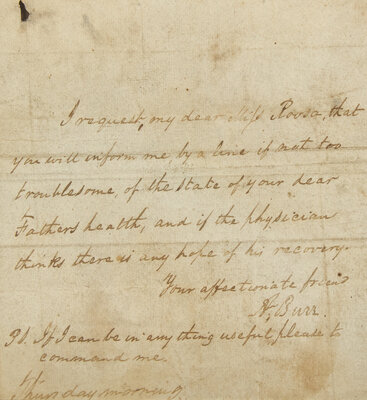 I request, my dear Miss Roosa, that
you will inform me by a line if not too
troublesome, of the state of your dear
Fathers health, and if the physician
thinks there is any hope of his recovery.
Your affectionate friend
Burr.
PS. If I can be in any thing useful, please to
command me.
Thursday morning,